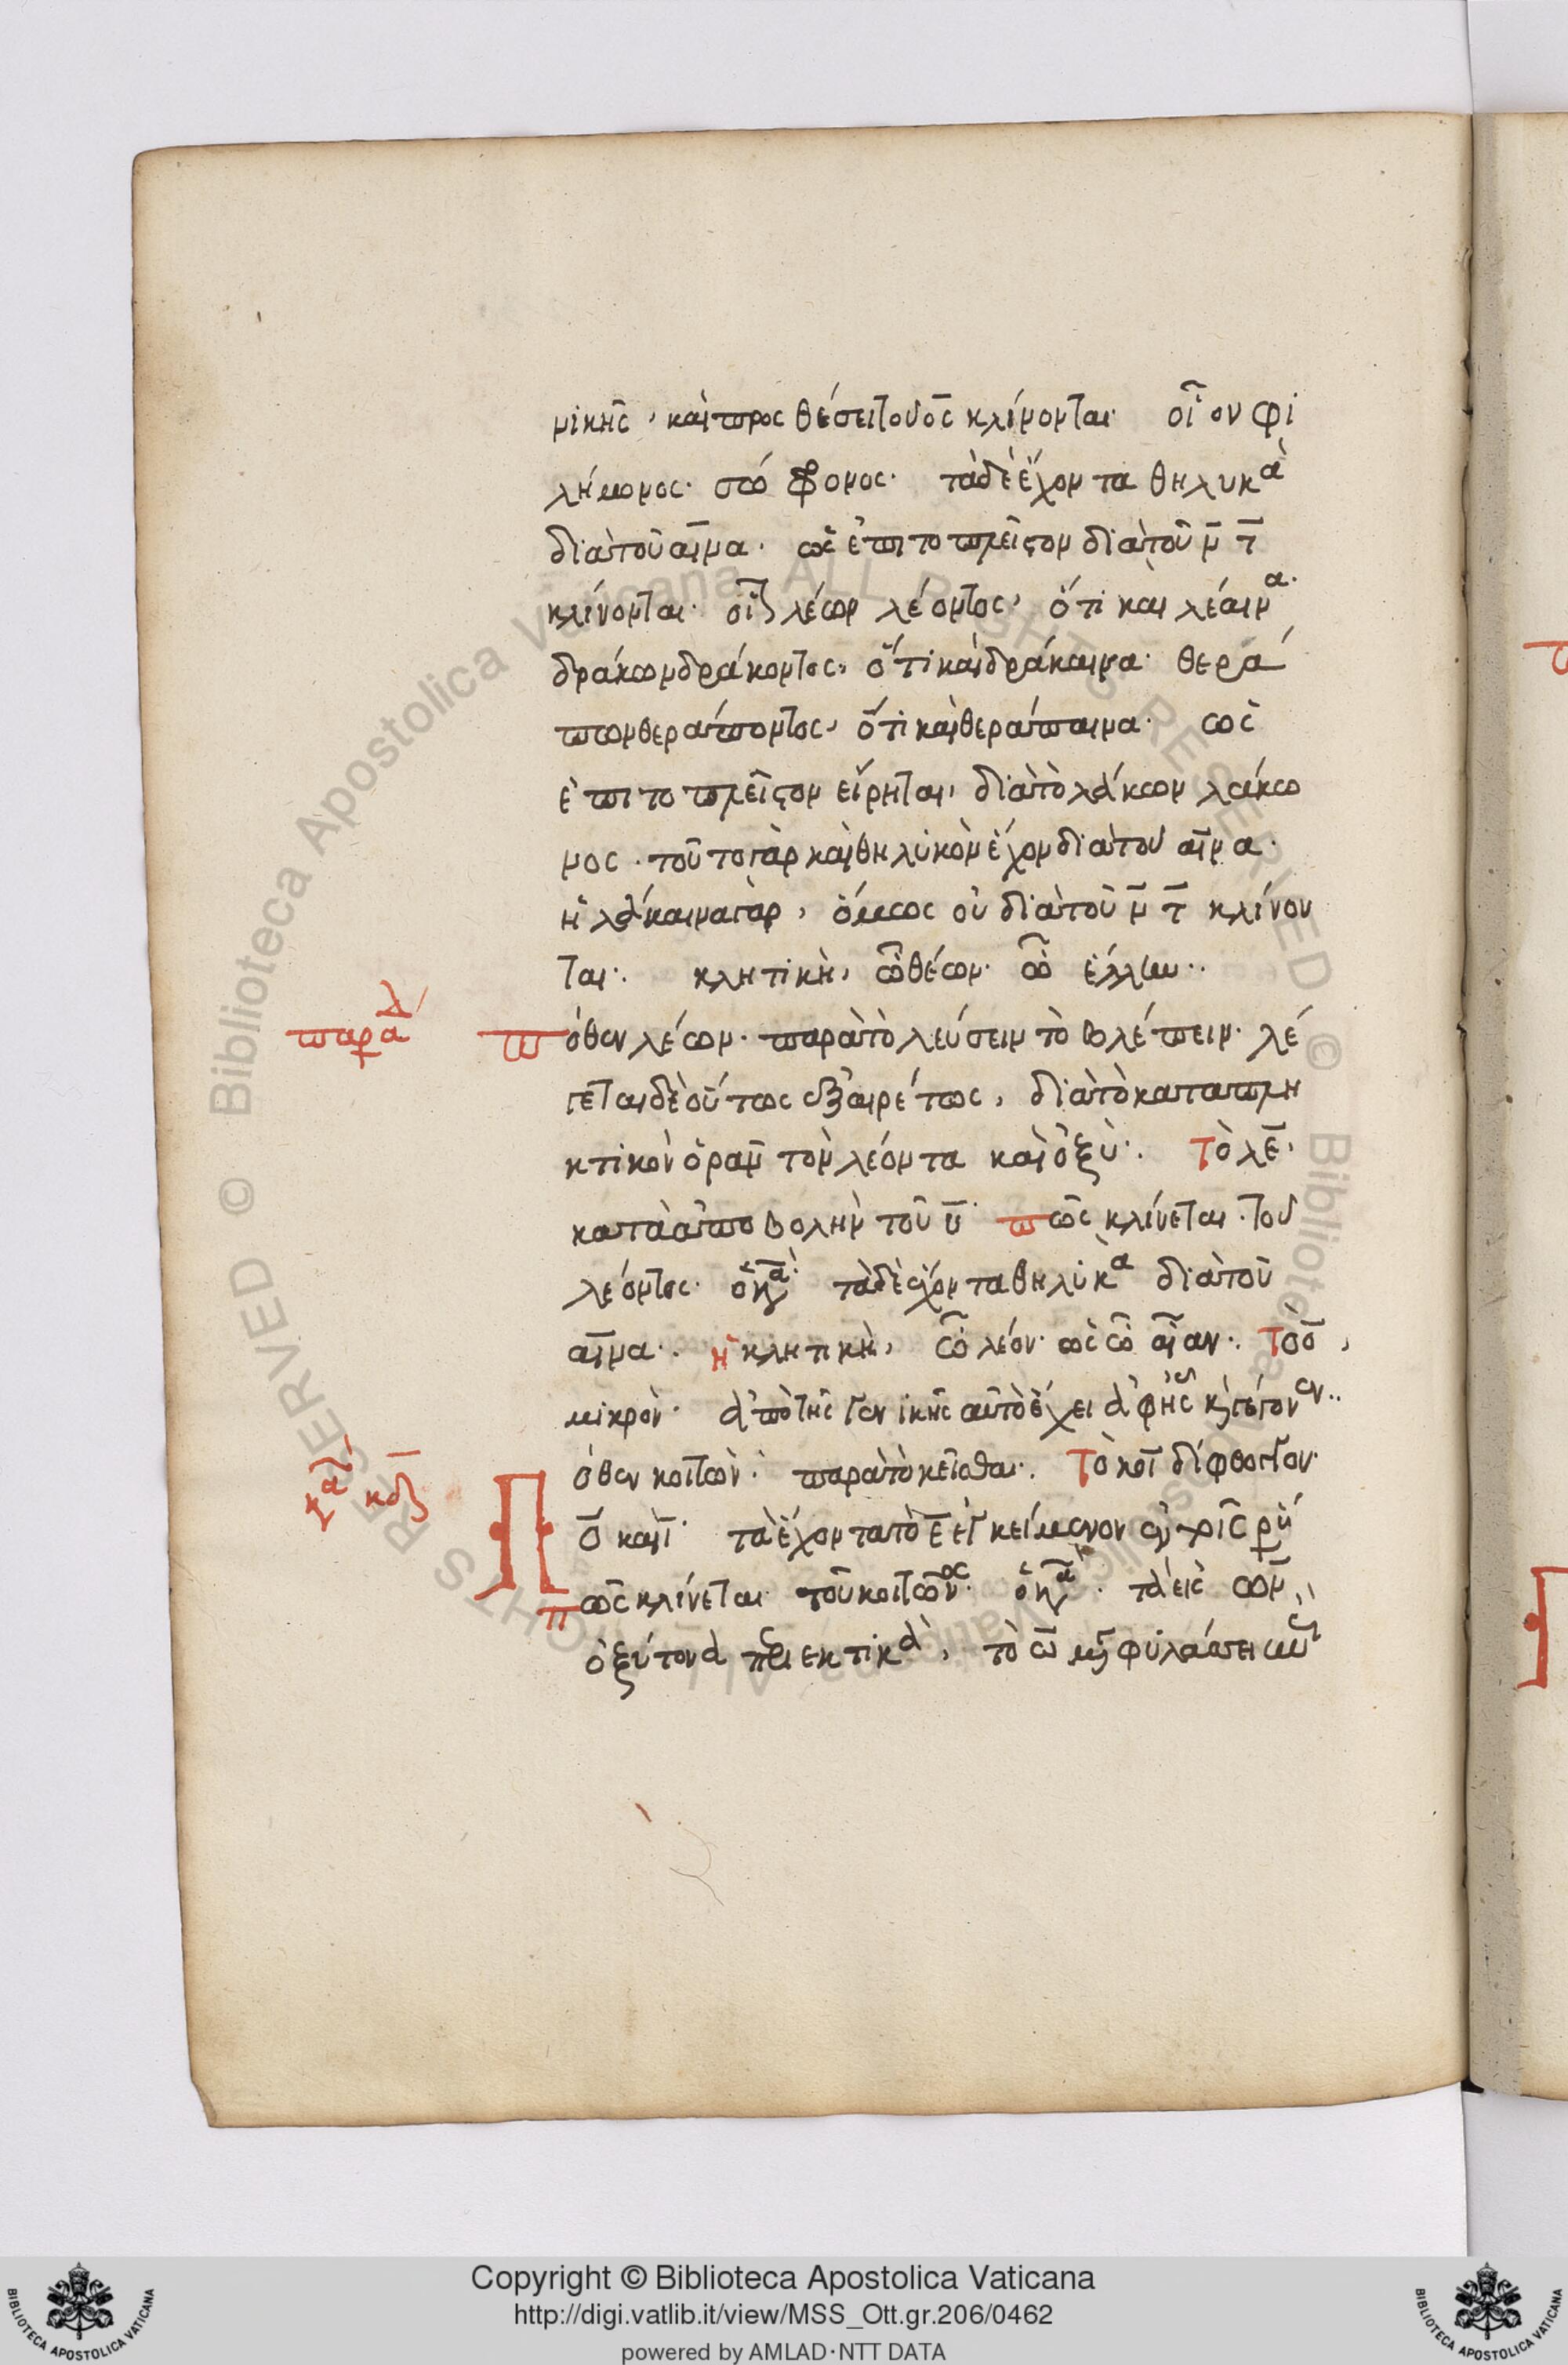 νικῆς, καὶ προσθέσει τοῦ ος κλίνονται. οἷον φι
λήμονος. στρόφονος. τὰ δὲ ἔχοντα θηλυκὰ
διὰ τοῦ αινα. ὡς ἐπιτοπλεῖστον διὰ τοῦ ν τ
κλίνονται. οἷον λέων λέοντος, ὅτι καὶ λέαινα.
δράκων δράκοντος, ὅτι καὶ δράκαινα. θερά
πων θεράποντος, ὅτι καὶ θεράπαινα. ὡς
ἐπιτοπλεῖστον εἴρηται, διὰ τὸ λάκων λάκω
νος. τοῦτο γὰρ καὶ θηλυκὸν ἔχον διὰ τοῦ αινα.
ἡ λάκαινα γὰρ, ὅμως οὐ διὰ τοῦ ν τ κλίνον
ται. κλητικὴ, ὦ θέων. ὦ ἕλλην.
παρα λ
πόθεν λέων. παρὰ τὸ λεύσειν τὸ βλέπειν. λέ
γεται δὲ οὕτως ἐξαιρέτως, διὰ τὸ καταπλη
κτικὸν ὁρᾶν τὸν λέοντα καὶ ὀξύ. Τὸ λε,
κατὰ ἀποβολὴν τοῦ υ. πῶς κλίνεται. τοῦ
λέοντος. ὁ κα. τὰ δὲ ἔχοντα θηλυκὰ διὰ τοῦ
αινα. ἡ κλητικὴ, ὦ λέον. ὡς ὦ αἶαν. Τὸ ο,
μικρόν. ἀπὸ τῆς γενικῆς αὐτὸ ἔχει ἀφ' ἧς καὶ γέγονεν.
κα κδ
Πόθεν κοιτών. παρὰ τὸ κεῖσθαι. Τὸ κοι δίφθογγον.
ο καὶ ι. τὰ ἔχοντα τὸ ε ἐγκείμενον ἐν τοῖς ρή
πῶς κλίνεται. τοῦ κοιτῶνος. ὁ κα. τὰ εἰς ων
ὀξύτονα περιεκτικὰ, τὸ ω μέγα φυλάττει
Copyright © Biblioteca Apostolica Vaticana
http://digi.vatlib.it/view/MSS_Ott.gr.206/0462
powered by AMLAD·NTT DATA